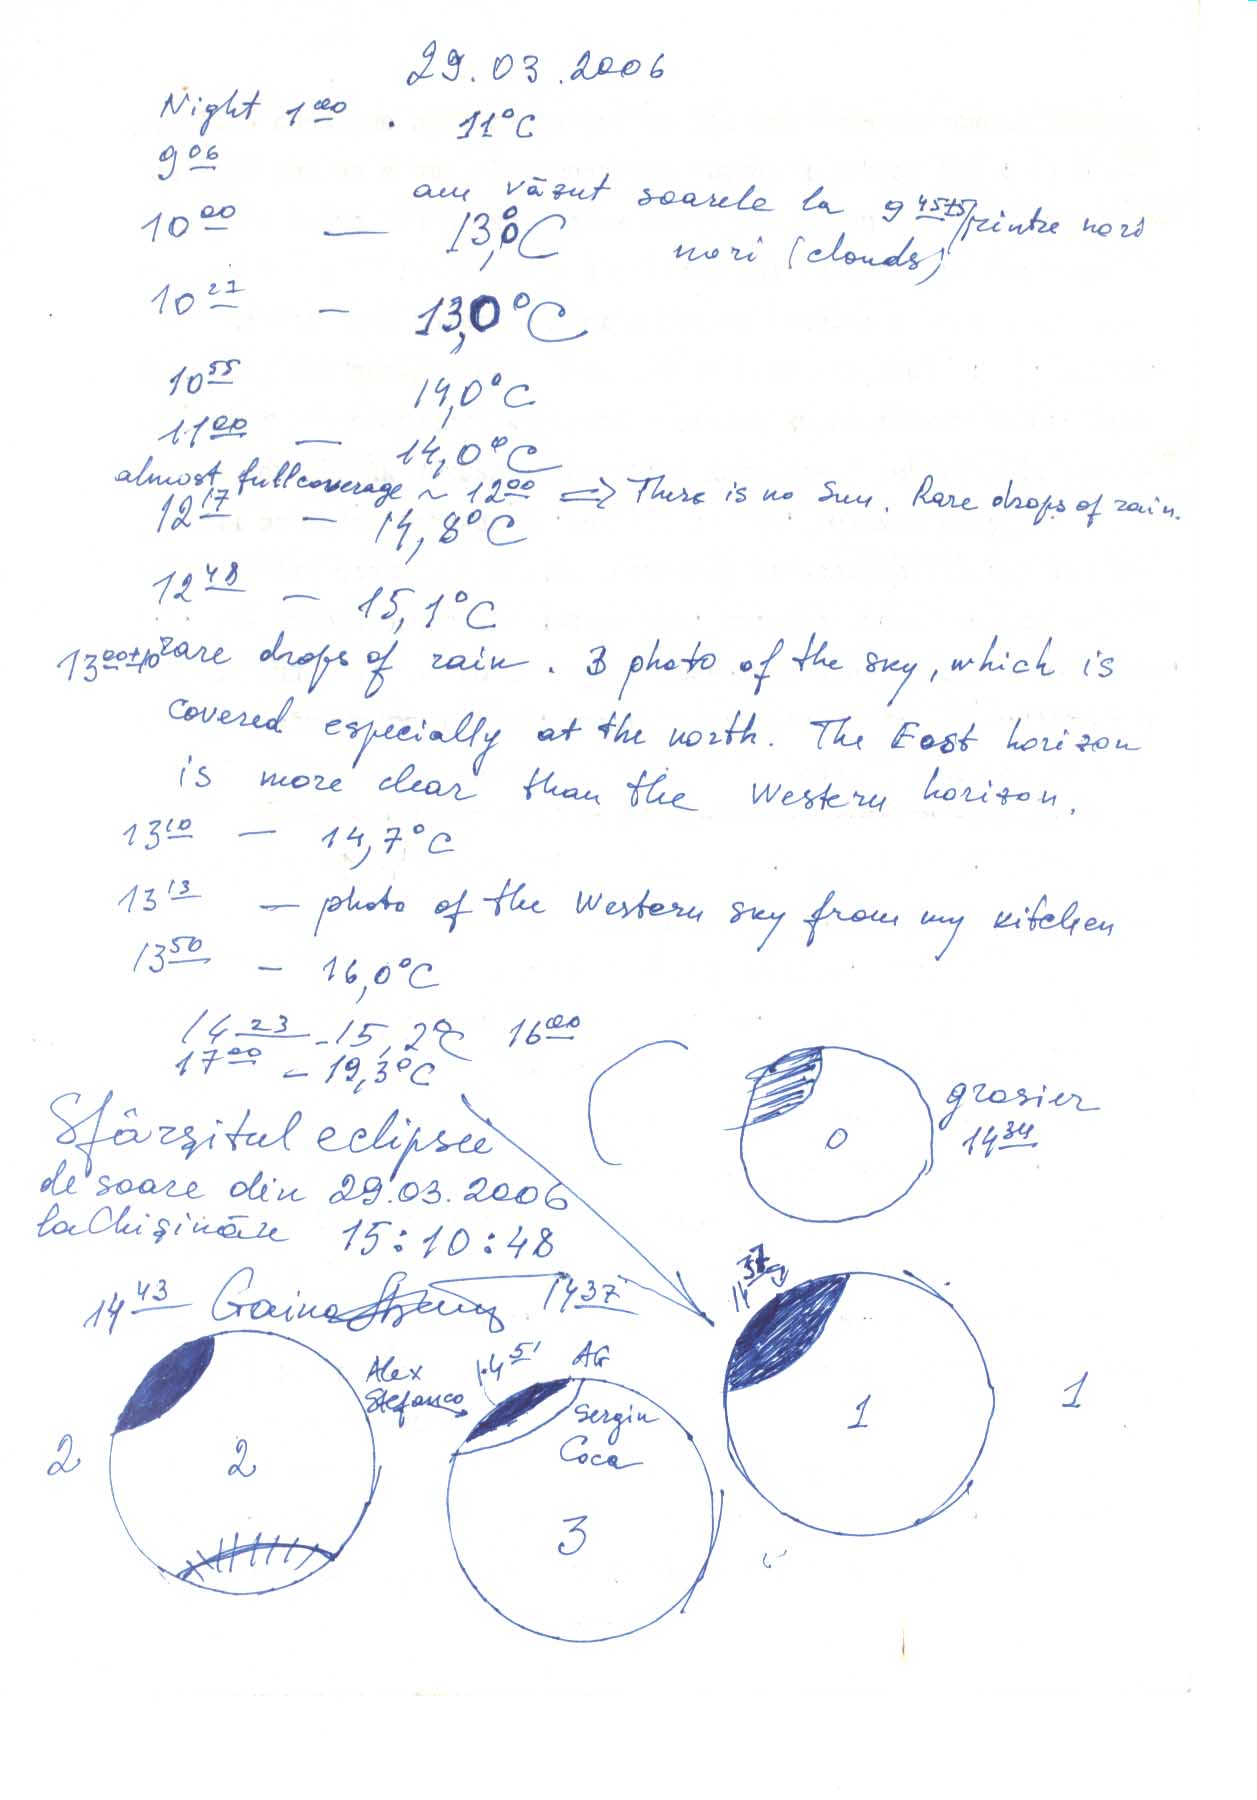 29.03.2006
Night 1⁰⁰ . 11°C
9⁰⁶
am văzut soarele la 9 printre nori
10⁰⁰ — 13,0°C nori (clouds)
10²⁷ — 13,0°C
10⁵⁵ 14,0°C
11⁰⁰ — 14,0°C
almost full coverage ~ 12⁰⁰ ⇒ There is no Sun. Rare drops of rain.
12¹⁷ — 14,8°C
12⁴⁸ — 15,1°C
13⁰⁰±¹⁰ rare drops of rain. 3 photo of the sky, which is
covered especially at the north. The East horizon
is more clear than the Western horizon.
13¹⁰ — 14,7°C
13¹³ — photo of the Western sky from my kitchen
13⁵⁰ — 16,0°C
14²³ - 15,2°C 16⁰⁰
17⁰⁰ — 19,3°C
grosier
14³⁴
0
Sfârșitul eclipsei
de soare din 29.03.2006
la Chișinău 15:10:48
14⁴³ Gaina 14³⁷
14³⁷
1
1
2
2
Alex
Stefanco
14⁵¹
AG
Sergiu
Coca
3